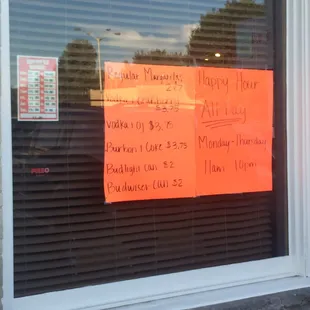 Regular Margarita
2.47
$3.25
Vodka + OJ $3.75
Burbon + Coke $3.75
Budlight Cans $2
Budwiser Cans $2
Happy Hour
All Day
Monday-Thursday
11am 10pm